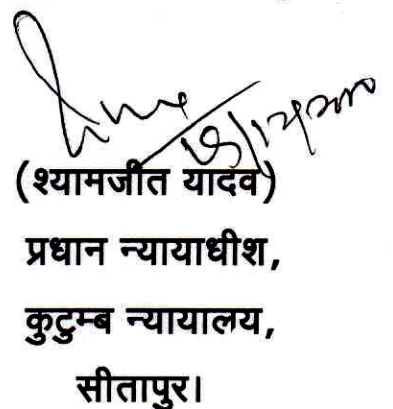 (श्यामजीत यादव)
प्रधान न्यायाधीश,
कुटुम्ब न्यायालय,
सीतापुर।